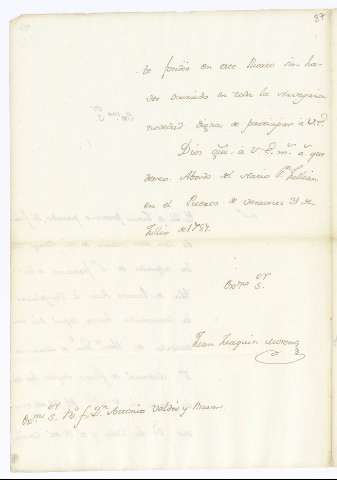 87
te fondeó en este Puerto sin ha-
ver ocurrido en toda la navegacion
novedad digna de participar à V.E.
Dios gũe à V.E. m.s a.s que
deseo. Abordo del Navio S.n Julian
en el Puerto de Veracruz 31 de
Julio de 1787.
Ex.mo S.or
Juan Joaquin Moreno
Ex.mo S.or B.o f. D.n Antonio Valdés y Bazan